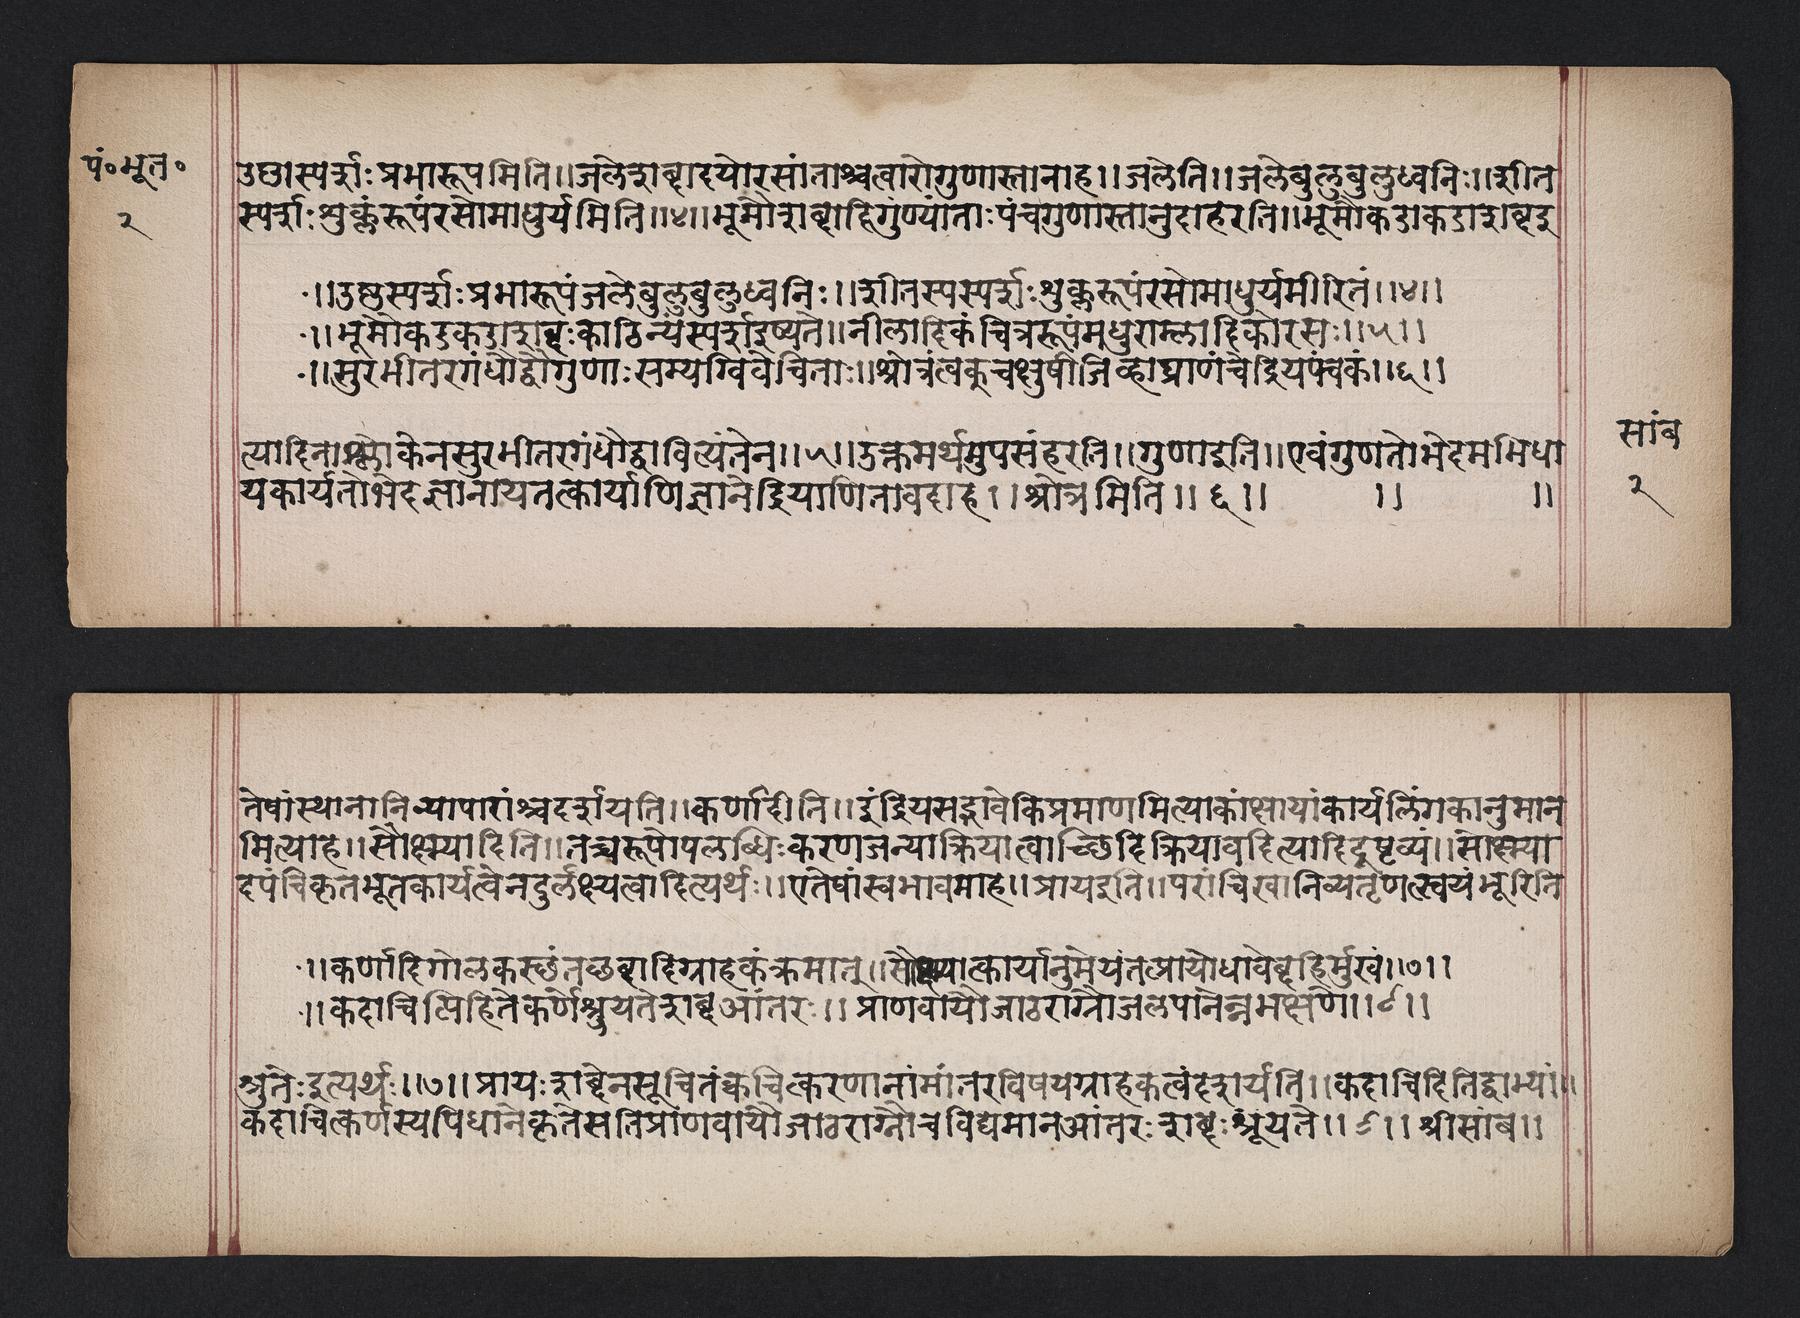 पं॰भूत॰
२
उष्णस्पर्शः प्रभारूपमिति।।जलेशब्दादयोरसांताश्चत्वारोगुणास्तानाह।।जलेति।।जलेबुलुबुलुध्वनिः।।शीत
स्पर्शः शुक्लंरूपंरसोमाधुर्यमिति।।४।।भूमौशब्दादिगुंण्यांताःपंचगुणास्तानुदाहरति।।भूमौकडाकडाशब्दइ
।।उष्णस्पर्शःप्रभारूपंजलेबुलुबुलुध्वनिः।।शीतस्पस्पर्शःशुक्लरूपंरसोमाधुर्यमीरितं।।४।।
।।भूमौकडकडाशब्दःकाठिन्यंस्पर्शइष्यते।।नीलादिकंचित्ररूपंमधुराम्लादिकोरसः।।५।।
।।सुरभीतरगंधौद्वौगुणाःसम्यग्विवेचिताः।।श्रोत्रंत्वक्चक्षुषीजिव्हाघ्राणंचेंद्रियपंचकं।।६।।
त्यादिनाश्लोकेनसुरभीतरगंधौद्वावित्यंतेन।।५।।उक्तमर्थमुपसंहरति।।गुणाइति।।एवंगुणतोभेदमभिधा
यकार्यतोभेदज्ञानायतत्कार्याणिज्ञानेंद्रियाणितावदाह।।श्रोत्रमिति।।६।। ।। ।।
सांब
२
तेषांस्थानानिव्यापारांश्चदर्शयति।।कर्णादीति।।इंद्रियसद्भावेकिंप्रमाणमित्याकांक्षायांकार्यलिंगकानुमान
मित्याह।।सौक्ष्म्यादिति।।तच्चरूपोपलब्धिःकरणजन्याक्रियात्वाच्छिदिक्रियावदित्यादिद्रष्टव्यं।।सौक्ष्म्या
दपंचिकृतभूतकार्यत्वेनदुर्लक्ष्यत्वादित्यर्थः।।एतेषांस्वभावमाह।।प्रायइति।।परांचिखानिव्यतृंणत्स्वयंभूरिति
।।कर्णादिगोलकस्छंतछब्दादिग्राहकंक्रमात्।।सौक्ष्म्यात्कार्यानुमेयंतत्प्रायोधावेब्दहिर्मुखं।।७।।
।।कदाचित्पिहितेकर्णेश्रुयतेशब्दआंतरः।।प्राणवायौजाठराग्नौजलपानेन्नभक्षणे।।८।।
श्रुतेःइत्यर्थः।।७।।प्रायःशब्देनसूचितंक्वचित्करणानांमांतरविषयग्राहकत्वंदर्शयति।।कदाचिदितिद्वाभ्यां।।
कदाचित्कर्णस्यपिधानेकृतेसतिप्राणवायौजाठराग्नौचविद्यमानआंतरःशब्दःश्रूयते।।८।।श्रीसांब।।